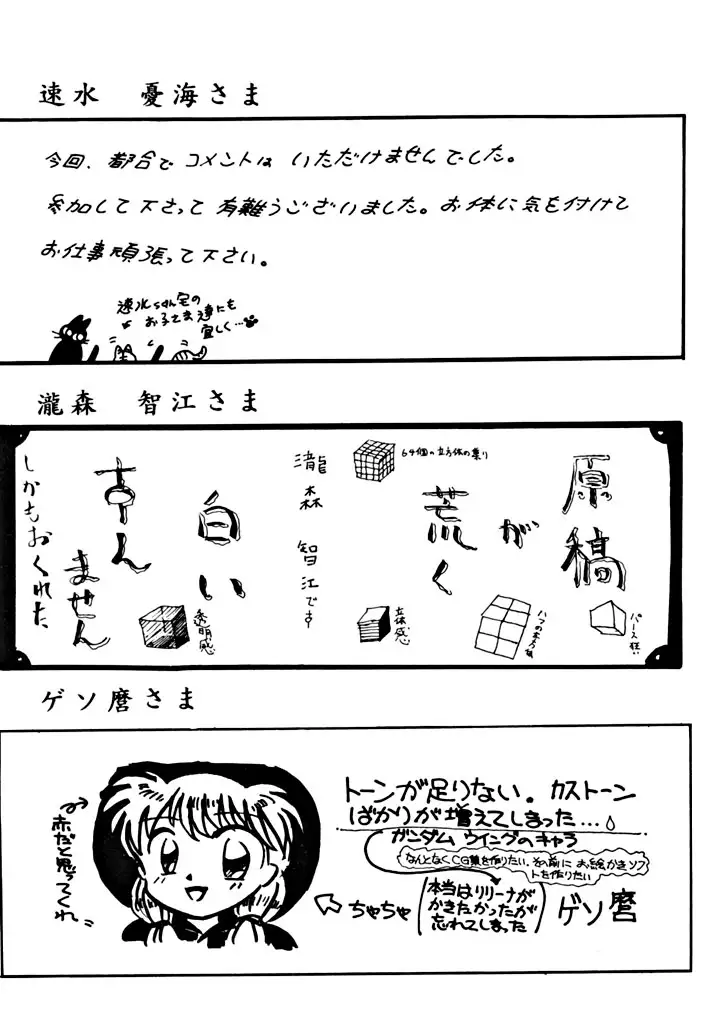 速水 憂海さま
今回、都合でコメントは いただけませんでした。
参加して下さって有難うございました。お体に気を付けて
お仕事頑張って下さい。
速水さん宅の
お子さま達にも
宜しく…
瀧森 智江さま
原稿
が
荒く
白い
すんません
しかもおくれた
瀧森 智江です
64個の立方体の集り
パース狂い
立体感
透明感
ゲソ麿さま
トーンが足りない。カストーン
ばかりが増えてしまった…。
ガンダム ウイングのキャラ
なんとなくCG集を作りたい、その前にお絵かきソフ
トを作りたい
本当はリリーナが
かきたかったが
忘れてしまった
ちゃちゃ
ゲソ麿
赤だと思ってくれ